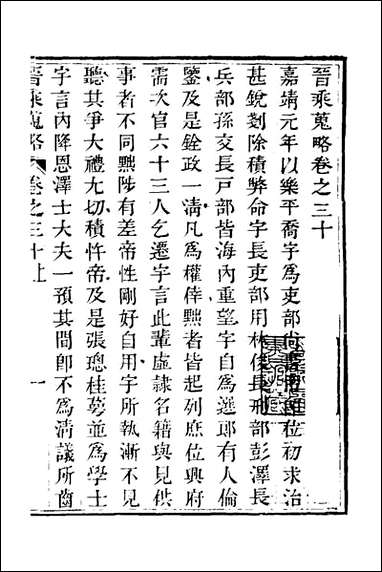 晉乘蒐略卷之三十
嘉靖元年以樂平喬宇爲吏部尚書時世位初求治
甚銳剗除積弊命宇長吏部用林俊長刑部彭澤長
兵部孫交長戸部皆海內重望宇自爲選郎有人倫
鑒及是銓政一淸凡爲權倖黜者皆起列庶位興府
需次官六十三人乞遷宇言此輩虛隷名籍與見供
事者不同黜陟有差帝性剛好自用宇所執漸不見
聽其爭大禮尢切積忤帝及是張璁桂萼並爲學士
宇言內降恩澤士大夫一預其間卽不爲淸議所齒
晉乘蒐略 卷之三十上 一